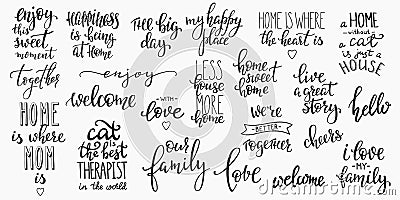 enjoy
this
sweet
moment
Happiness
is being
at Home
THE big
day
my happy
place
HOME IS WHERE
the heart is
a HOME
without a
cat is
just a
HOUSE
together
enjoy
welcome
WITH
love
LESS
HOUSE
MORE
HOME
home
sweet
home
live
a great
story
hello
HOME
is where
MOM
is
cat
IS THE best
THERAPIST
in the world
our
family
We're
BETTER
TOGETHER
cheers
love
welcome
i love
MY
family
dreamstime.com